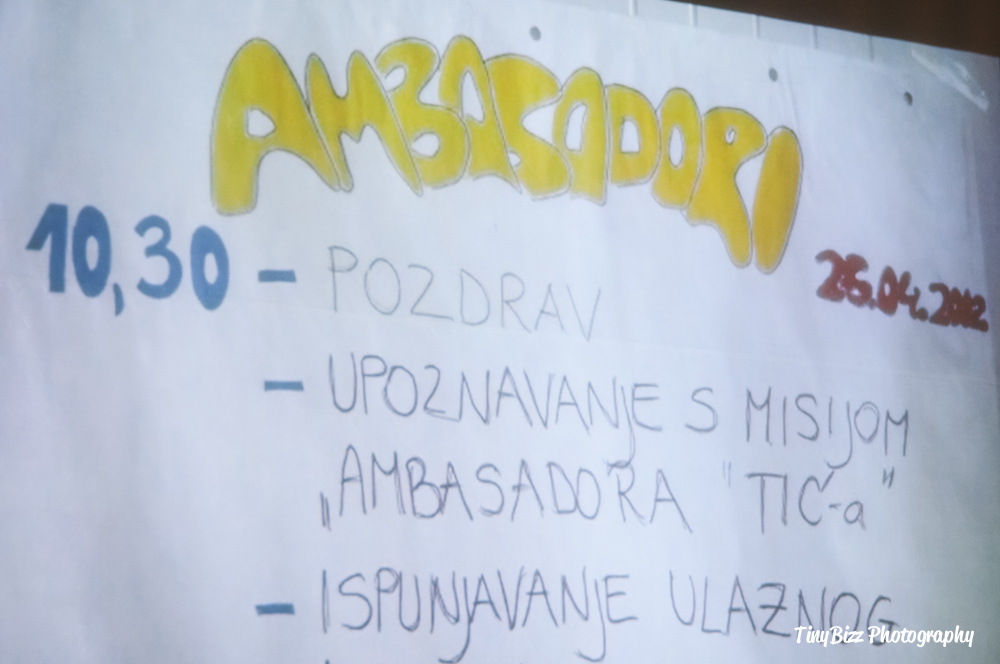 AMBASADORI
10,30 - POZDRAV
25.04.2012
- UPOZNAVANJE S MISIJOM
„AMBASADORA "TIĆ-a"
- ISPUNJAVANJE ULAZNOG
TinyBizz Photography